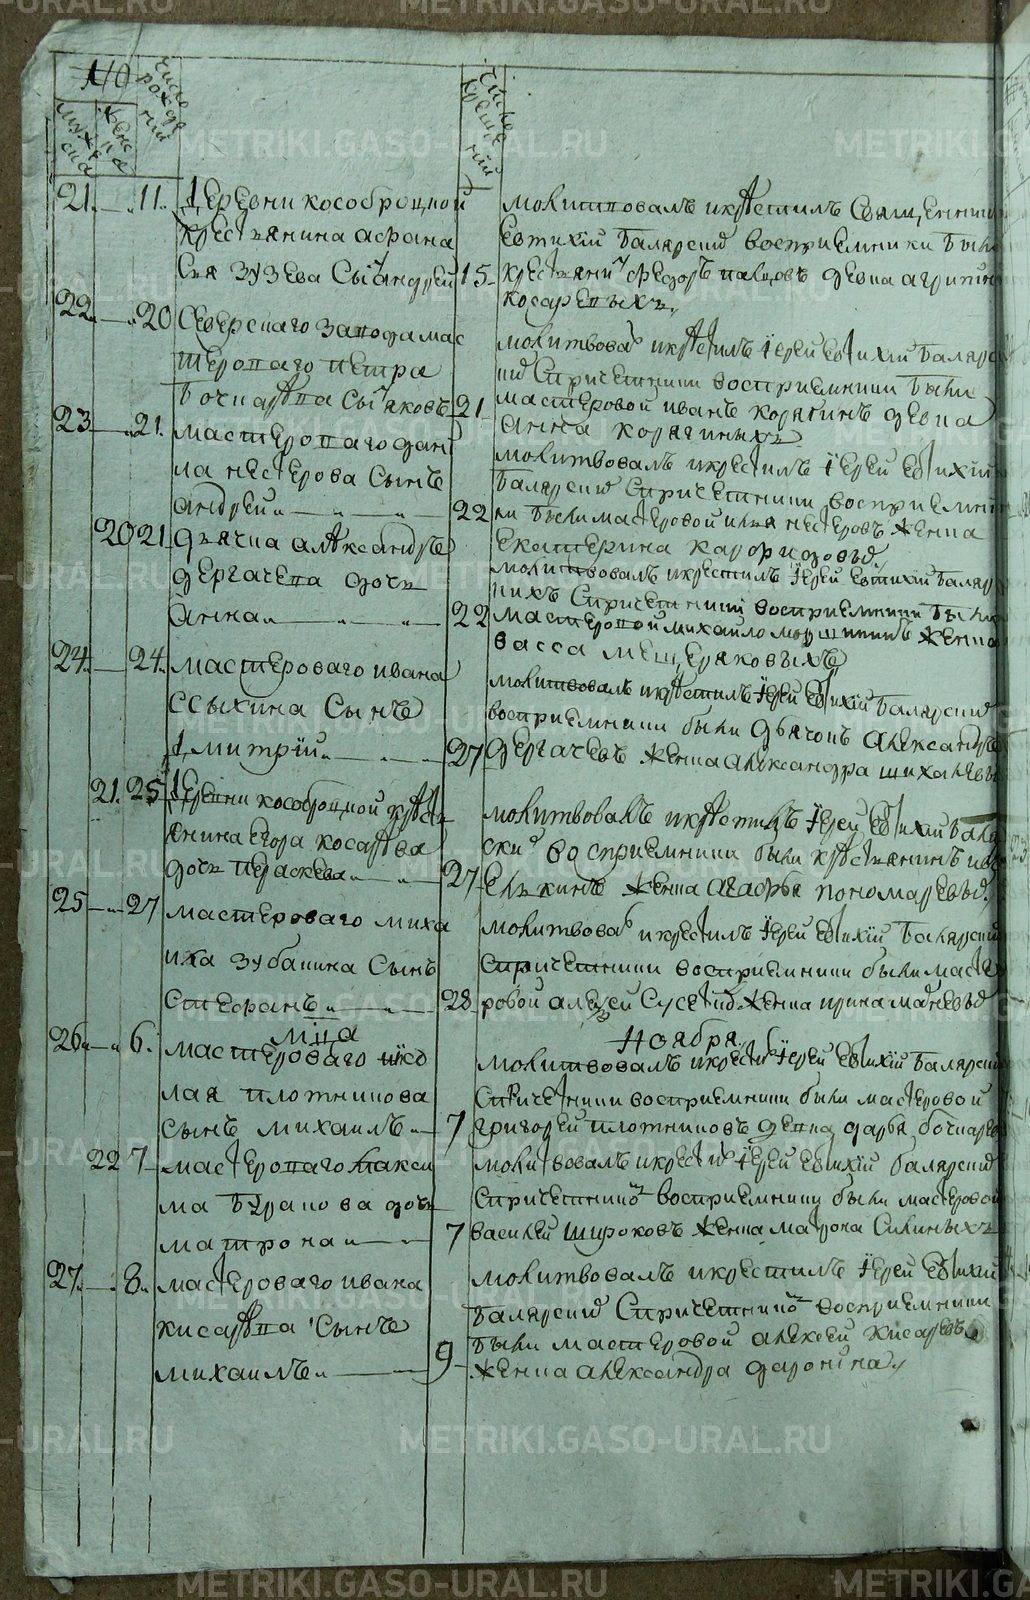 №
число рожде ний
число креще ний
муж ска
жен ска
21. 11. деревни кособроцкой
крестьянина афана
сья зуева сынъ андрей 15
молитвовалъ икрестилъ Священни
Евтихїй балярски восприемники были
крестьянинъ Федоръ девка агрипин
косаревыхъ
22 20 Северскаго завода мас
тероваго петра
бочкарева сынъ яковъ 21
молитвовалъ икрестилъ їерей Евтихїй балярс
ки Спричетники восприемники были
мастеровой иванъ корягинъ девка
анна корягиныхъ
23 21. мастероваго дани
ла нестерова сынъ
андрей 22
молитвовалъ икрестилъ їерей Евтихїй
балярски Спричетники восприемни
ки были мастеровой илья нестеровъ женка
Екатерина
20 21 дьячка александра
дергачева дочь
анна 22
молитвовалъ икрестилъ їерей Евтихїй баляр
Спричетники восприемники были
мастеровой михайло женка
васса мещеряковыхъ
24 24. мастероваго ивана
ссыкина сынъ
дмитрїй 27
молитвовалъ икрестилъ їерей Евтихїй балярски
восприемники были дьячокъ александръ
дергачевъ женка александра
21. 25 деревни кособроцкой кресть
янина егора косарева
дочь параскева 27
молитвовалъ икрестилъ їерей Евтихїй баля
ски восприемники были крестьянинъ ив
женка агафья пономарева
25 27 мастероваго миха
ила зубакина сынъ
стефанъ 28
молитвовалъ икрестилъ їерей Евтихїй балярски
Спричетники восприемники были масте
ровой алексей женка ирина
мца Ноября
26 6. мастероваго нико
лая плотникова
сынъ михаилъ 7
молитвовалъ икрестилъ їерей Евтихїй балярски
Спричетники восприемники были мастеровой
григорей плотниковъ девка дарья бочкарев
22 7 мастероваго макси
ма буракова дочь
матрона 7
молитвовалъ икрестилъ їерей Евтихїй балярски
Спричетники восприемники были мастеровой
василей широковъ женка матрона силиныхъ
27 8 мастероваго ивана
кисарева сынъ
михаилъ 9
молитвовалъ икрестилъ їерей Евтихїй
балярски Спричетники восприемники
были мастеровой алексей кисаревъ
женка александра доронина
METRIKI.GASO-URAL.RU